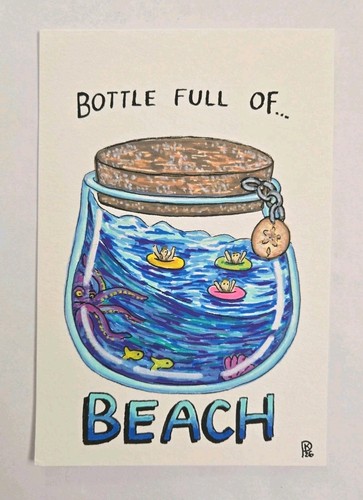 BOTTLE FULL OF...
BEACH